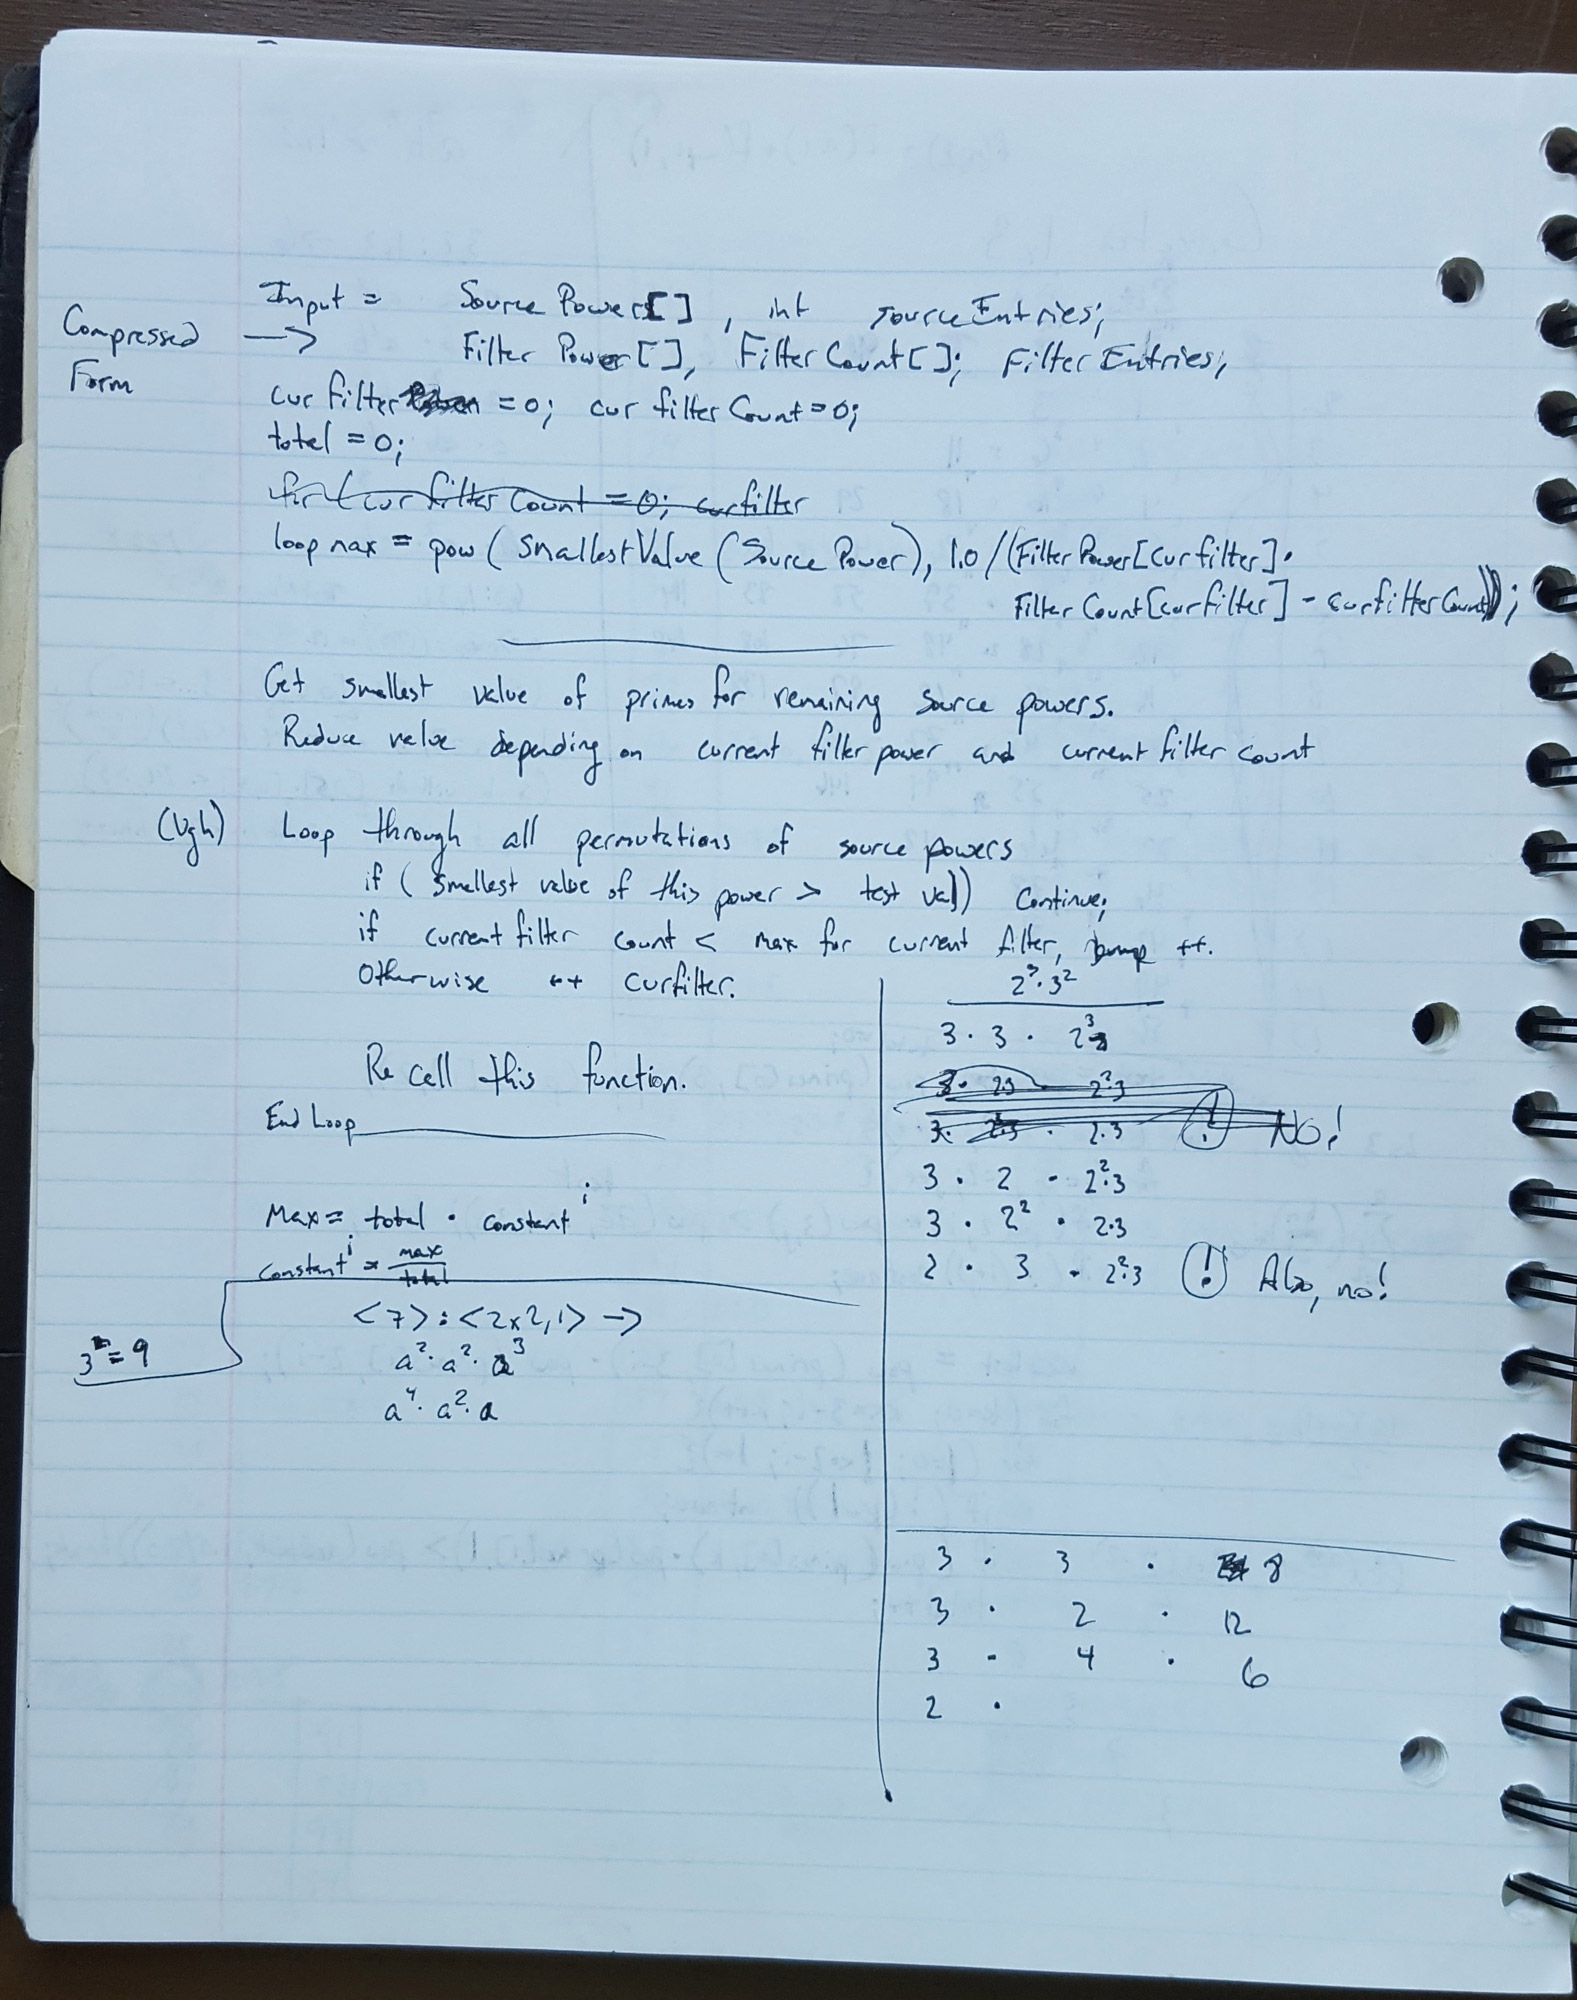 Input = Source Powers[], int sourceEntries;
Compressed Form → Filter Power[], Filter Count[]; Filter Entries;
cur filter = 0; cur filter Count = 0;
total = 0;
for (cur filter Count = 0; curfilter
loop max = pow (smallest Value (Source Power), 1.0/(Filter Power[curfilter]·
Filter Count[curfilter] - curfilterCount));
Get smallest value of primes for remaining source powers.
Reduce value depending on current filter power and current filter count
(Ugh) Loop through all permutations of source powers
if (smallest value of this power > test val) Continue;
if current filter count < max for current filter, bump ++.
Otherwise ++ curfilter.
Re call this function.
End Loop
Max = total · constant^i
constant^i = max/total
<7> : <2x2,1> →
3² = 9
a² · a² · a³
a⁴ · a² · a
2³·3²
3 · 3 · 2³
3 · 2·3 2²·3
3 · 2·3 · 2·3 (!) NO!
3 · 2 · 2²·3
3 · 2² · 2·3
2 · 3 · 2²·3 (!) Also, no!
3 · 3 · 8
3 · 2 · 12
3 · 4 · 6
2 ·